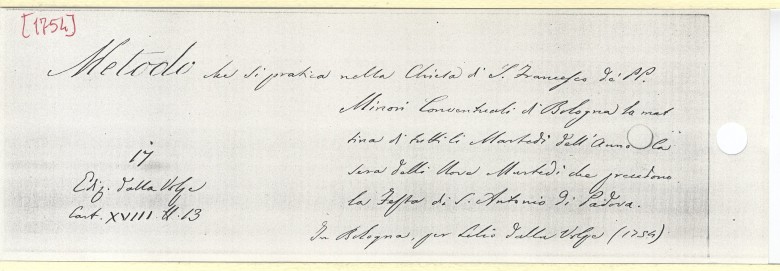 [1754]
Metodo che si pratica nella Chiesa di S. Francesco de' PP.
Minori Conventuali di Bologna la mat
tina di tutti li Martedì dell'Anno la
sera delli Nove Martedì che precedono
la Festa di S. Antonio di Padova.
In Bologna, per Lelio dalla Volpe (1754).
17
Ediz. dalla Volpe
Cart. XVIII N. 13